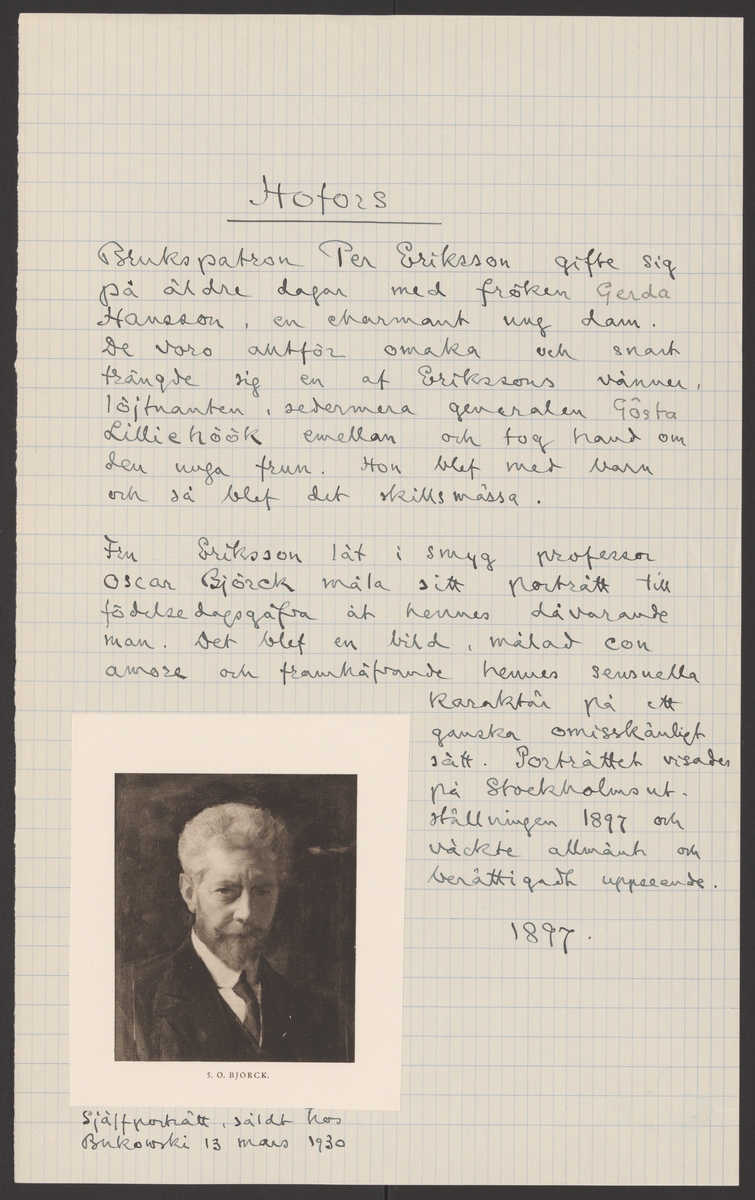 Hofors
Brukspatron Per Eriksson gifte sig
på äldre dagar med fröken Gerda
Hansson, en charmant ung dam.
De voro alltför omaka och snart
trängde sig en af Erikssons vänner,
löjtnanten, sedermera generalen Gösta
Lilliehöök emellan och tog hand om
den unga frun. Hon blef med barn
och så blef det skillsmässa.
Fru Eriksson lät i smyg professor
Oscar Björck måla sitt porträtt till
födelsedagsgåfva åt hennes dåvarande
man. Det blef en bild, målad con
amore och framhäfvande hennes sensuella
karaktär på ett
ganska omisskänligt
sätt. Porträttet visades
på Stockholmsut-
ställningen 1897 och
väckte allmänt och
berättigadt uppseende.
1897.
S. O. BJÖRCK.
Självporträtt, såldt hos
Bukowski 13 mars 1930